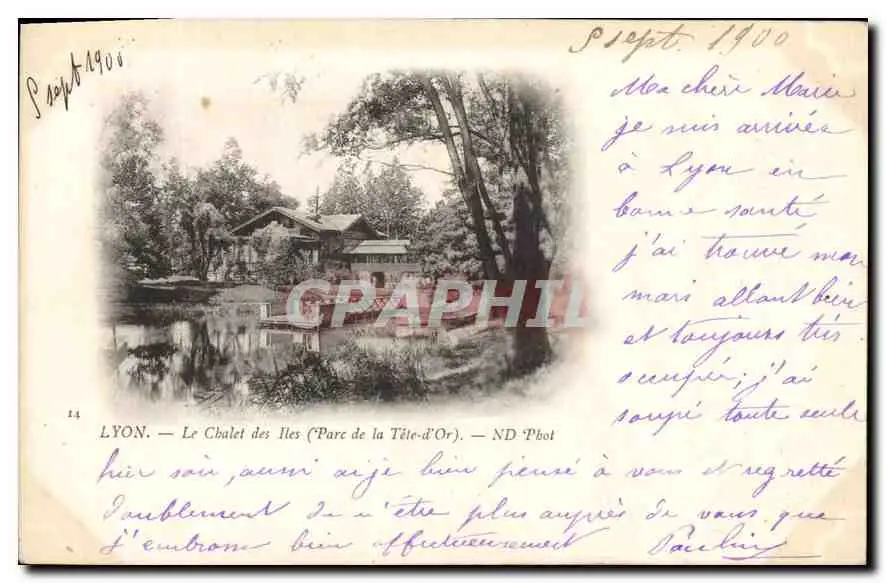 8 sept 1900
8 sept. 1900
Ma chère Marie
je suis arrivée
à Lyon en
bonne santé
j'ai trouvé mon
mari allant bien
et toujours très
occupé; j'ai
soupé toute seule
CPAPHIL
14
LYON. — Le Chalet des Iles (Parc de la Tête-d'Or). — ND Phot
hier soir, aussi ai je bien pensé à vous et regretté
doublement de n'être plus auprès de vous que
j'embrasse bien affectueusement Paulin